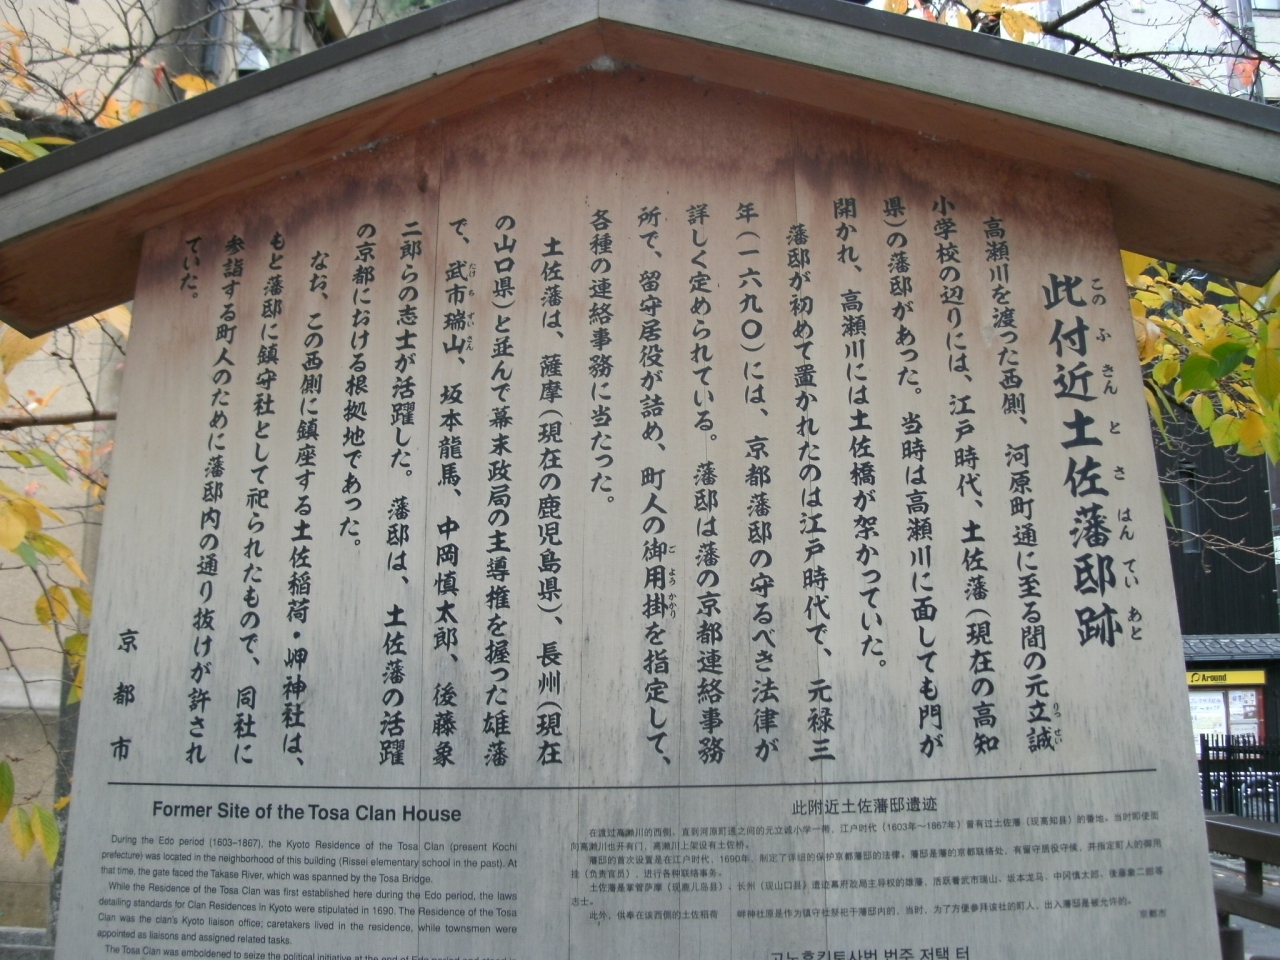 此付近土佐藩邸跡
このふきんとさはんていあと
高瀬川を渡った西側、河原町通に至る間の元立誠
りっせい
小学校の辺りには、江戸時代、土佐藩(現在の高知
県)の藩邸があった。当時は高瀬川に面しても門が
開かれ、高瀬川には土佐橋が架かっていた。
藩邸が初めて置かれたのは江戸時代で、元禄三
年(一六九〇)には、京都藩邸の守るべき法律が
詳しく定められている。藩邸は藩の京都連絡事務
所で、留守居役が詰め、町人の御用掛を指定して、
ごようかかり
各種の連絡事務に当たった。
土佐藩は、薩摩(現在の鹿児島県)、長州(現在
の山口県)と並んで幕末政局の主導権を握った雄藩
で、武市瑞山、坂本龍馬、中岡慎太郎、後藤象
たけちずいさん
二郎らの志士が活躍した。藩邸は、土佐藩の活躍
の京都における根拠地であった。
なお、この西側に鎮座する土佐稲荷・岬神社は、
もと藩邸に鎮守社として祀られたもので、同社に
参詣する町人のために藩邸内の通り抜けが許され
ていた。
京都市
Former Site of the Tosa Clan House
During the Edo period (1603–1867), the Kyoto Residence of the Tosa Clan (present Kochi
prefecture) was located in the neighborhood of this building (Rissei elementary school in the past). At
that time, the gate faced the Takase River, which was spanned by the Tosa Bridge.
While the Residence of the Tosa Clan was first established here during the Edo period, the laws
detailing standards for Clan Residences in Kyoto were stipulated in 1690. The Residence of the Tosa
Clan was the clan's Kyoto liaison office; caretakers lived in the residence, while townsmen were
appointed as liaisons and assigned related tasks.
The Tosa Clan was emboldened to seize the political initiative at the end of Edo period and stood in
此附近土佐藩邸遗迹
在渡过高濑川的西侧,直到河原町通之间的元立诚小学一带,江户时代(1603年~1867年)曾有过土佐藩(现高知县)的番地。当时即使面
向高濑川也开有门,高濑川上架设有土佐桥。
藩邸的首次设置是在江户时代,1690年,制定了详细的保护京都藩邸的法律。藩邸是藩的京都联络处,有留守居役守候,并指定町人的御用
挂(负责官员),进行各种联络事务。
土佐藩是掌管萨摩(现鹿儿岛县)、长州(现山口县)遗迹幕府政局主导权的雄藩,活跃着武市瑞山、坂本龙马、中冈慎太郎、後藤象二郎等
志士。
此外,供奉在该西侧的土佐稻荷 岬神社原是作为镇守社祭祀于藩邸内的,当时,为了方便参拜该社的町人,出入藩邸是被允许的。
京都市
고노후킨토사번 번주 저택 터
Around